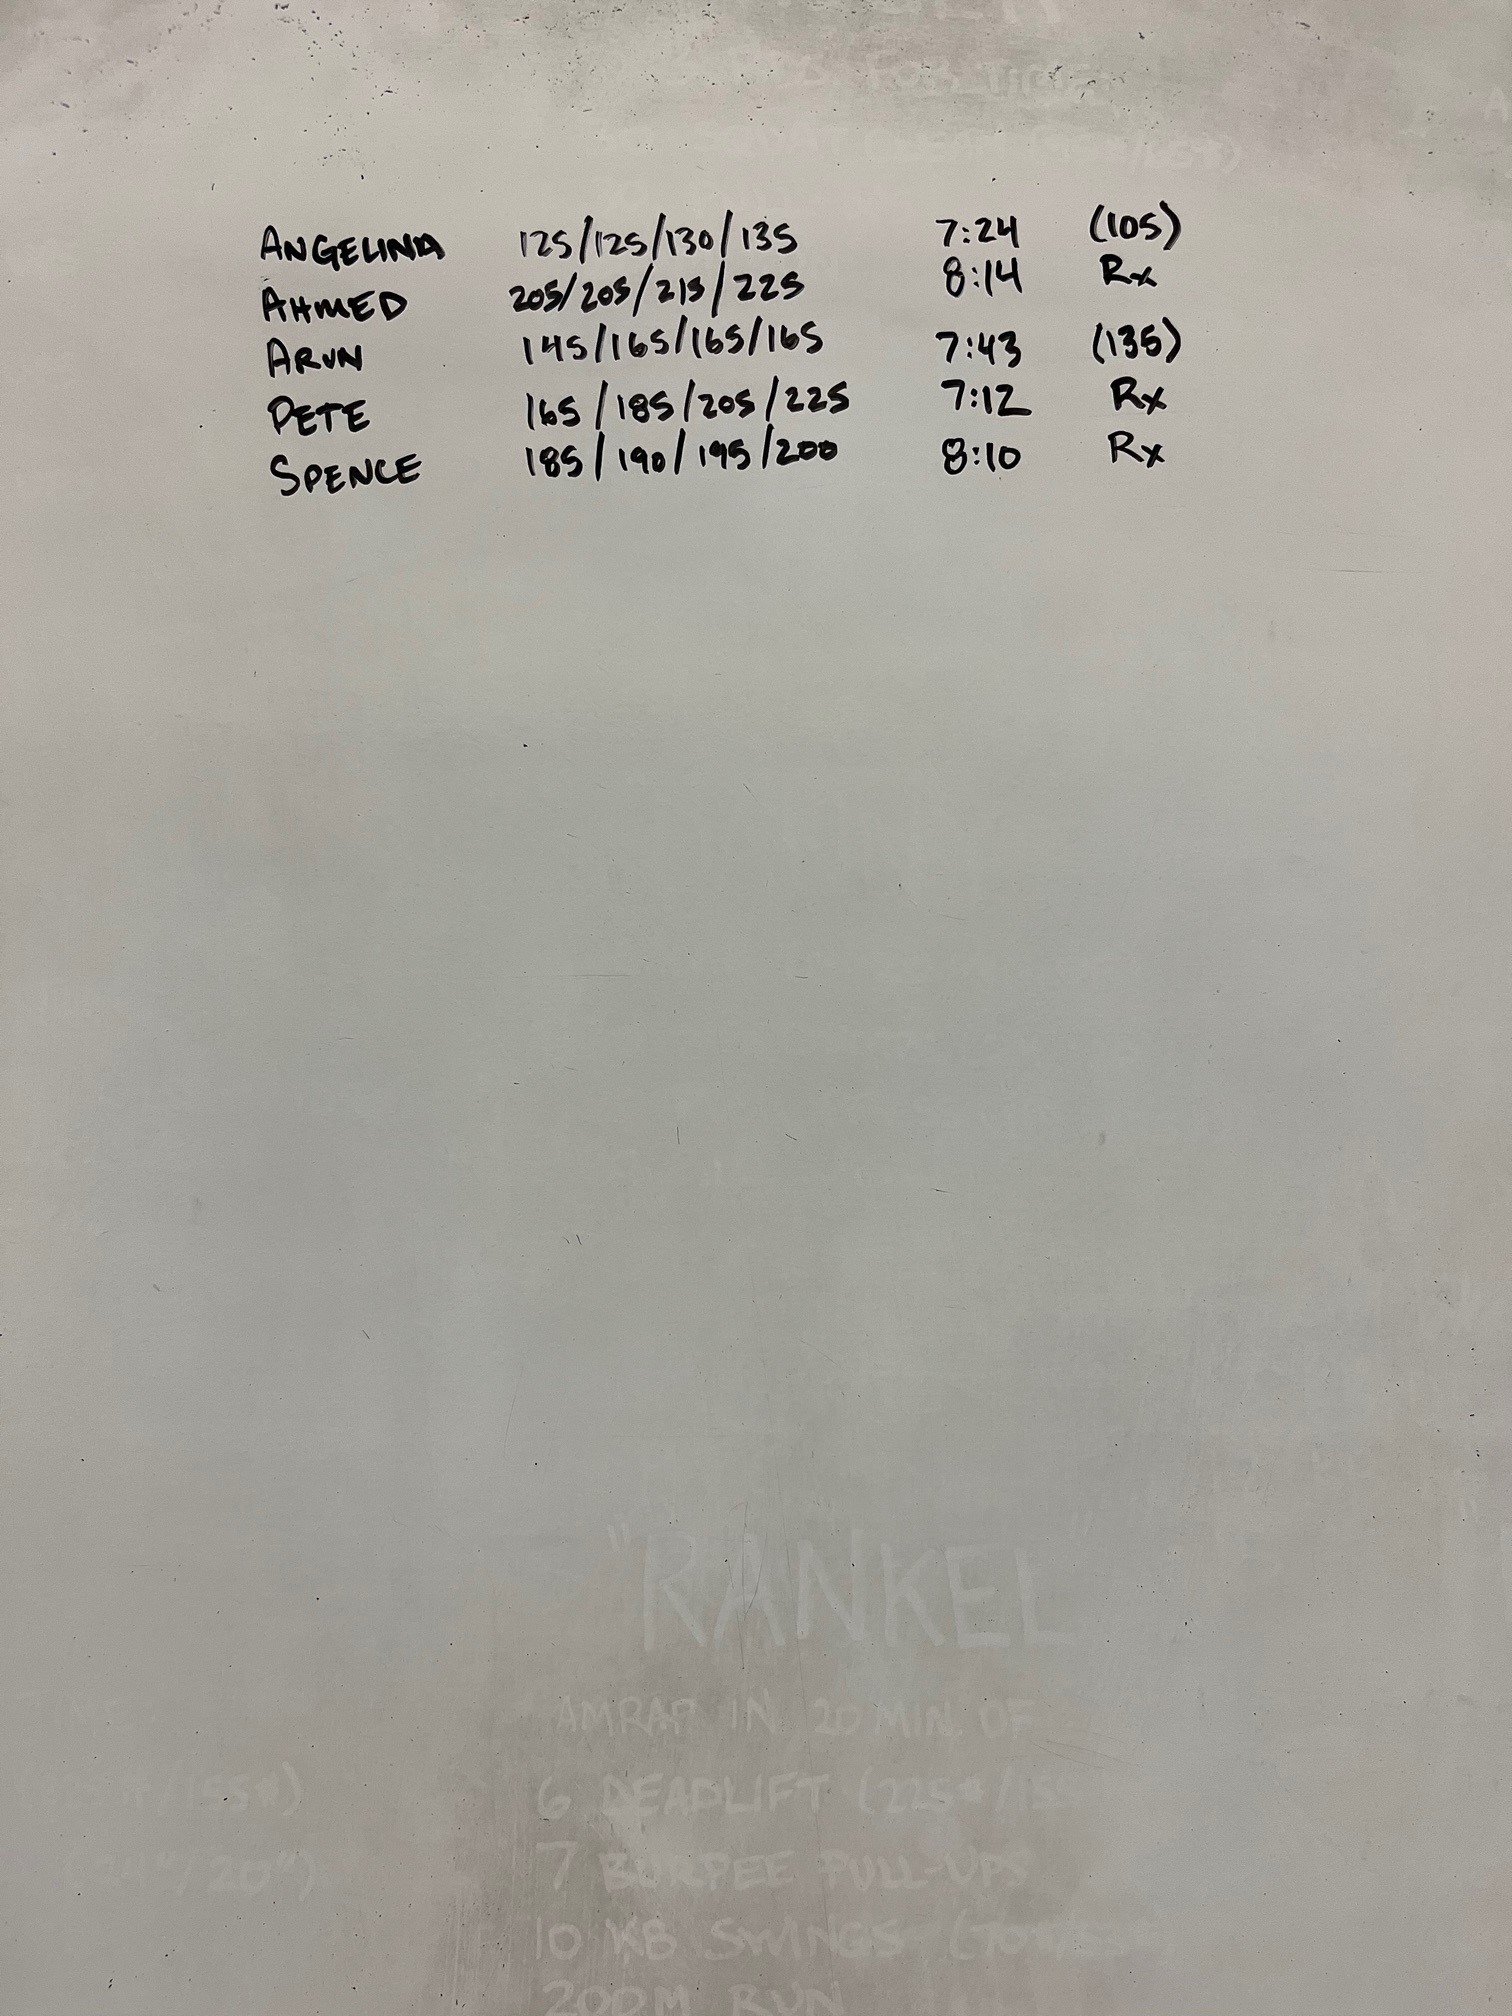 FOR TIME
ANGELINA 125/125/130/135 7:24 (105)
AHMED 205/205/215/225 8:14 Rx
ARUN 145/165/165/165 7:43 (135)
PETE 165/185/205/225 7:12 Rx
SPENCE 185/190/195/200 8:10 Rx
"RANKEL"
AMRAP IN 20 MIN. OF
6 DEADLIFT (225#/155
7 BURPEE PULL-UPS
(24"/20")
10 KB SWINGS
200M RUN